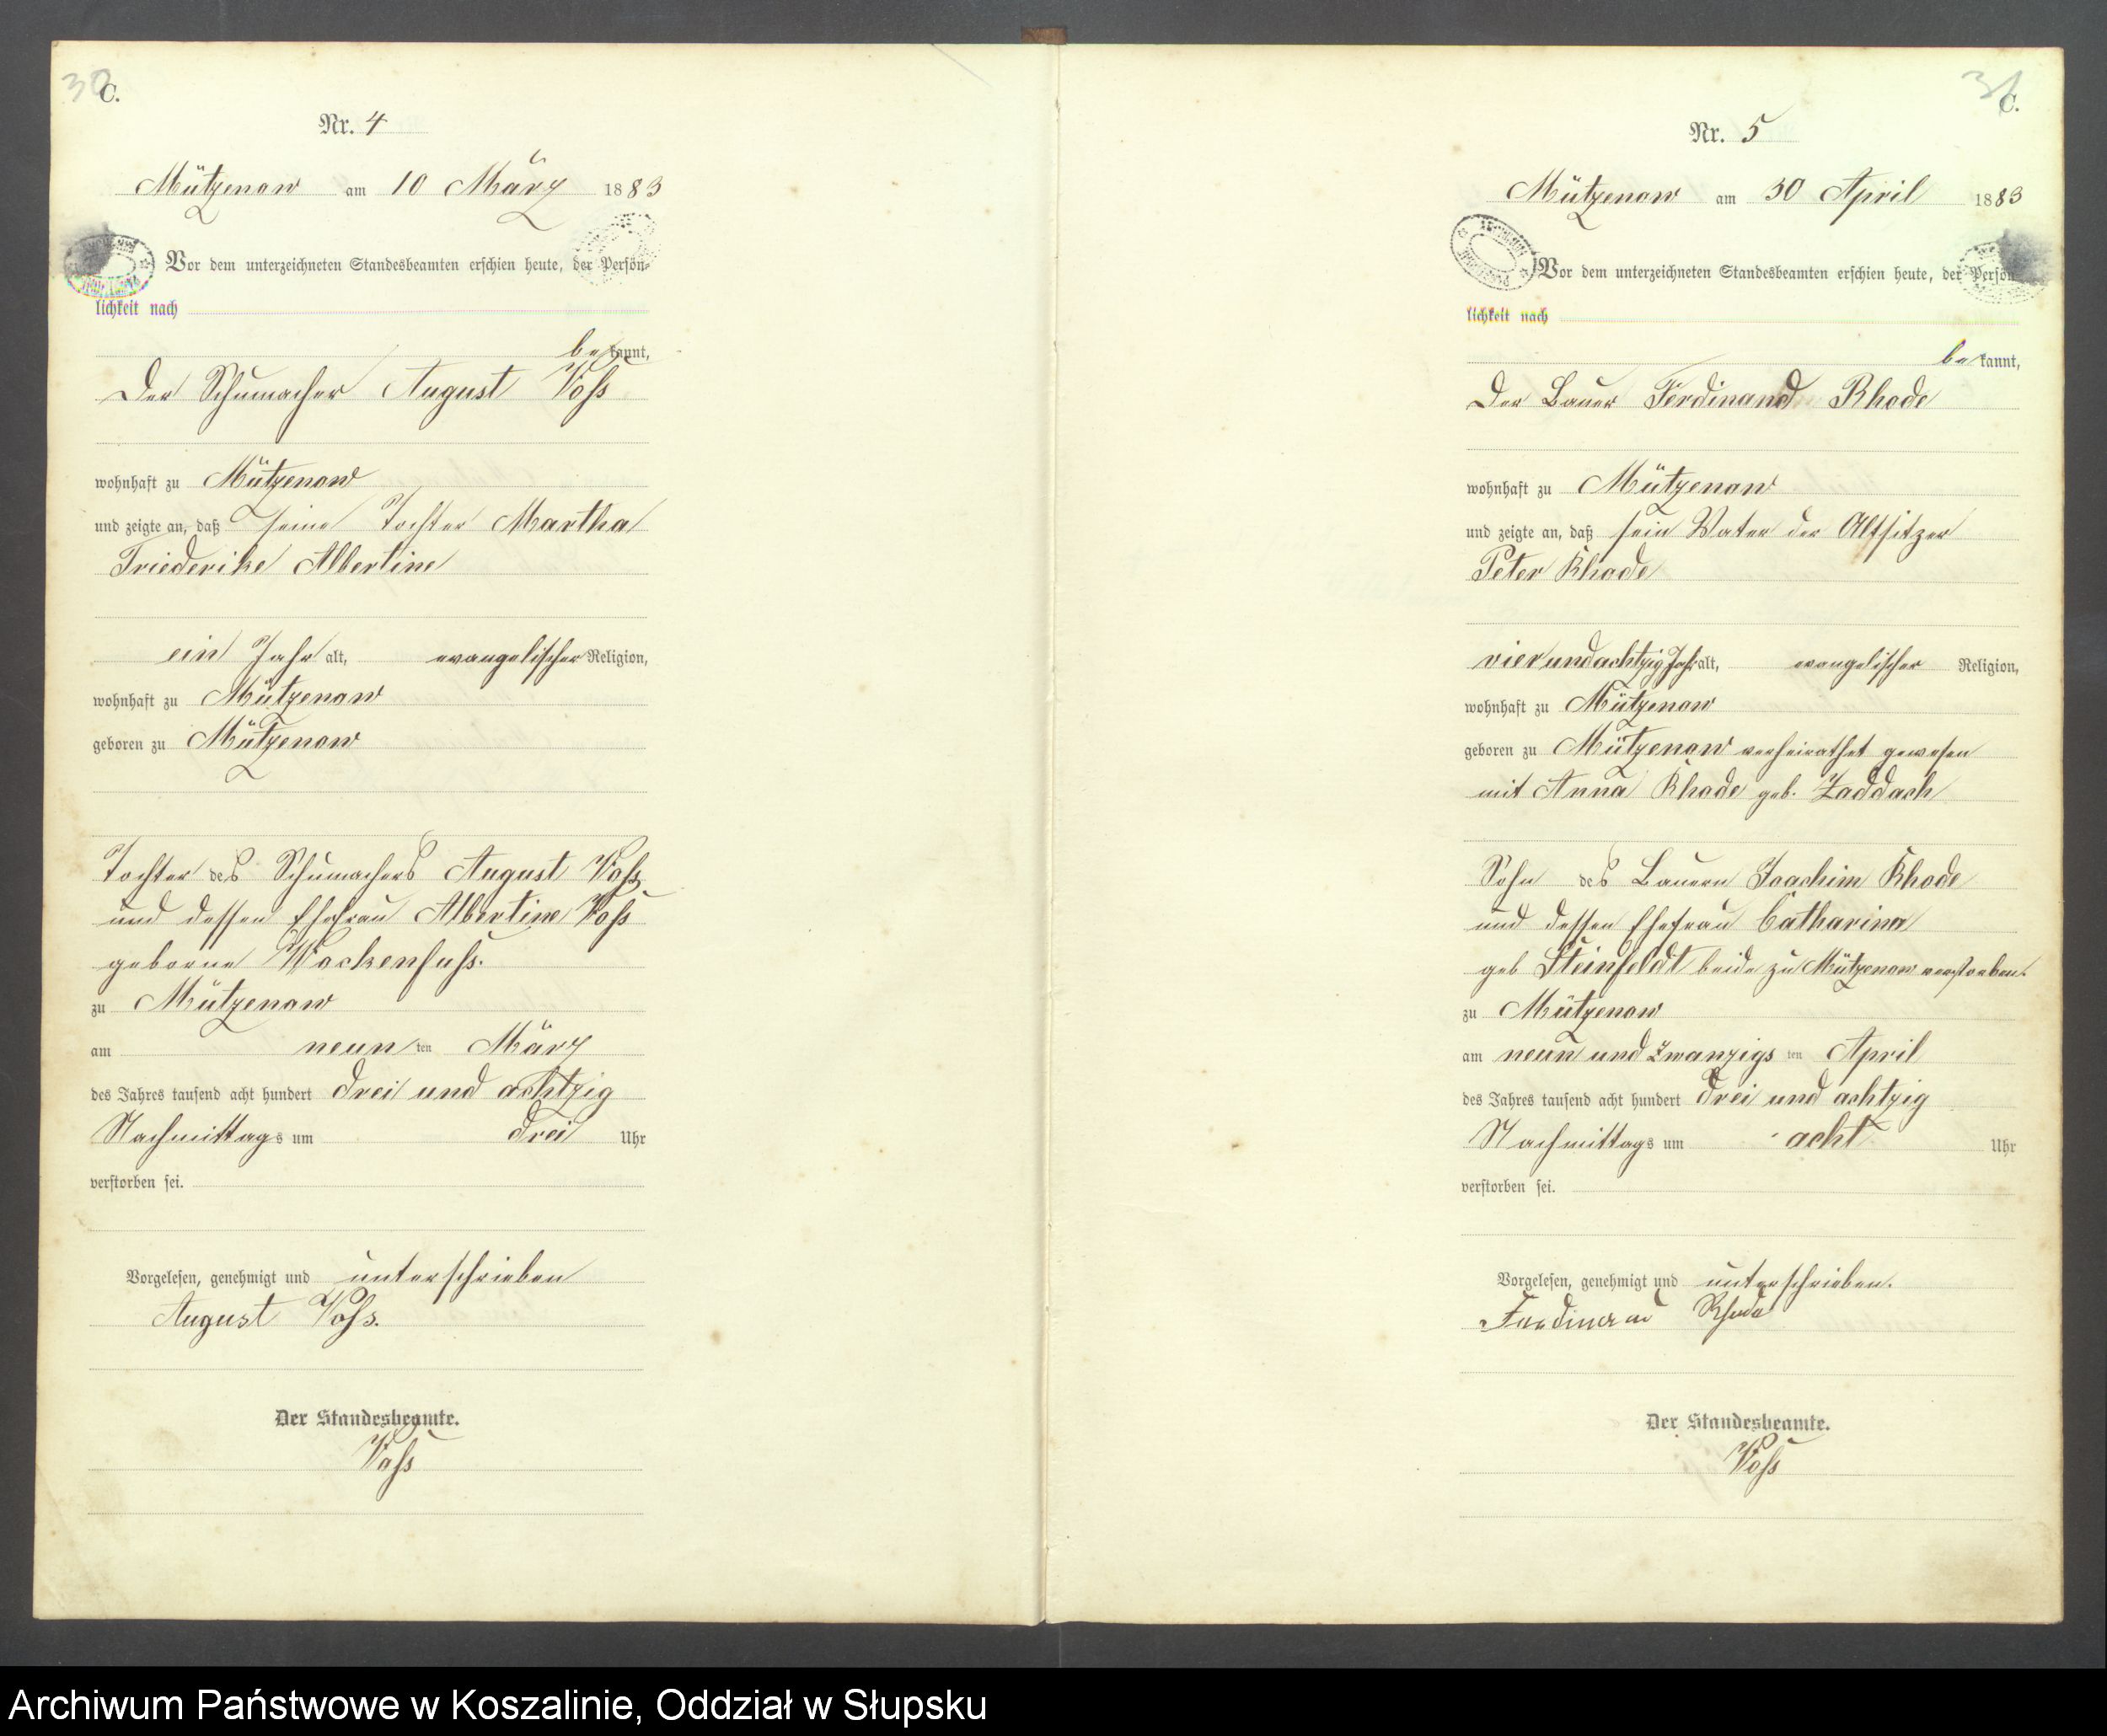 30
C.
Nr. 4
Mützenow am 10 März 1883
Vor dem unterzeichneten Standesbeamten erschien heute, der Persön-
lichkeit nach
bekannt,
Der Schumacher August Voß
wohnhaft zu Mützenow
und zeigte an, daß seine Tochter Martha
Friederike Albertine
ein Jahr alt, evangelischer Religion,
wohnhaft zu Mützenow
geboren zu Mützenow
Tochter des Schumachers August Voß
und dessen Ehefrau Albertine Voß
geborne Wockenfuß.
zu Mützenow
am neunten März
des Jahres tausend acht hundert drei und achtzig
Nachmittags um drei Uhr
verstorben sei.
Vorgelesen, genehmigt und unterschrieben
August Voß.
Der Standesbeamte.
Voß
31
C.
Nr. 5
Mützenow am 30 April 1883
Vor dem unterzeichneten Standesbeamten erschien heute, der Persön-
lichkeit nach
bekannt,
Der Bauer Ferdinand Rhode
wohnhaft zu Mützenow
und zeigte an, daß sein Vater der Altsitzer
Peter Rhode
vierundachtzig Jahr alt, evangelischer Religion,
wohnhaft zu Mützenow
geboren zu Mützenow verheirathet gewesen
mit Anna Rhode geb. Zaddach
Sohn des Bauern Joachim Rhode
und dessen Ehefrau Catharina
geb Steinfeldt beide zu Mützenow verstorben.
zu Mützenow
am neun und zwanzigsten April
des Jahres tausend acht hundert drei und achtzig
Nachmittags um acht Uhr
verstorben sei.
Vorgelesen, genehmigt und unterschrieben.
Ferdinand Rhode
Der Standesbeamte.
Voß
Archiwum Państwowe w Koszalinie, Oddział w Słupsku